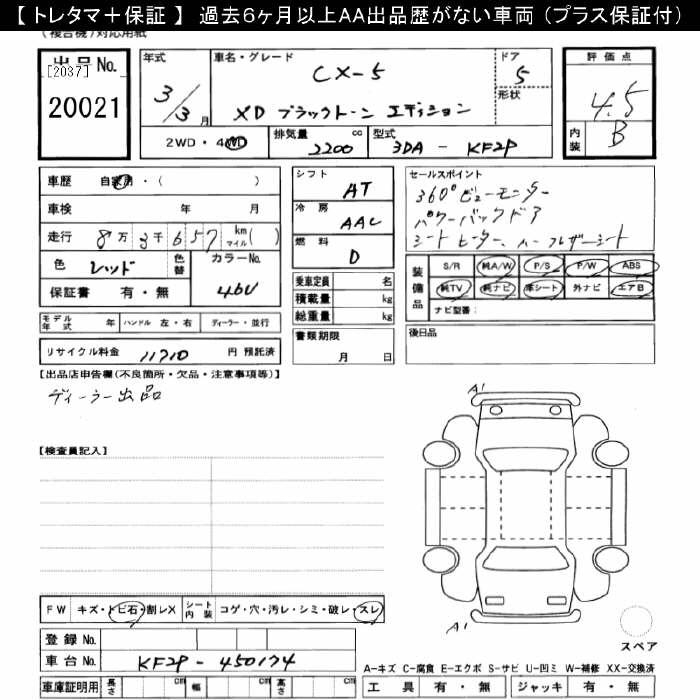 【 トレタマ＋保証 】 過去6ヶ月以上AA出品歴がない車両 (プラス保証付)
(複合機)対応用紙
出品No.
[2037]
20021
年式
3/3月
車名・グレード
CX-5
XD ブラックトーン エディション
ドア
5
形状
評価点
4.5
内装
B
2WD・4WD
排気量
2200
cc
型式
3DA - KF2P
車歴 自家用・( )
車検 年 月
走行 8万3千657 km マイル( )
色 レッド
色替
カラーNo.
46V
保証書 有・無
シフト
AT
冷房
AAC
燃料
D
乗車定員 名
積載量 kg
総重量 kg
書類期限
月 日
セールスポイント
360°ビューモニター
パワーバックドア
シートヒーター、ハーフレザーシート
装備品
S/R 純A/W P/S P/W ABS
純TV 純ナビ 革シート 外ナビ エアB
ナビ型番:
後日品
モデル年式 年 ハンドル 左・右 ディーラー・並行
リサイクル料金 11710 円 預託済
【出品店申告欄(不良箇所・欠品・注意事項等)】
ディーラー出品
【検査員記入】
A1
A1
スペア
FW キズ・トビ石・割レX シート内装 コゲ・穴・汚レ・シミ・破レ・スレ
登録 No.
車台 No. KF2P - 450174
車庫証明用 長さ cm 幅 cm 高さ cm
A−キズ C−腐食 E−エクボ S−サビ U−凹ミ W−補修 XX−交換済
工具 有・無 ジャッキ 有・無